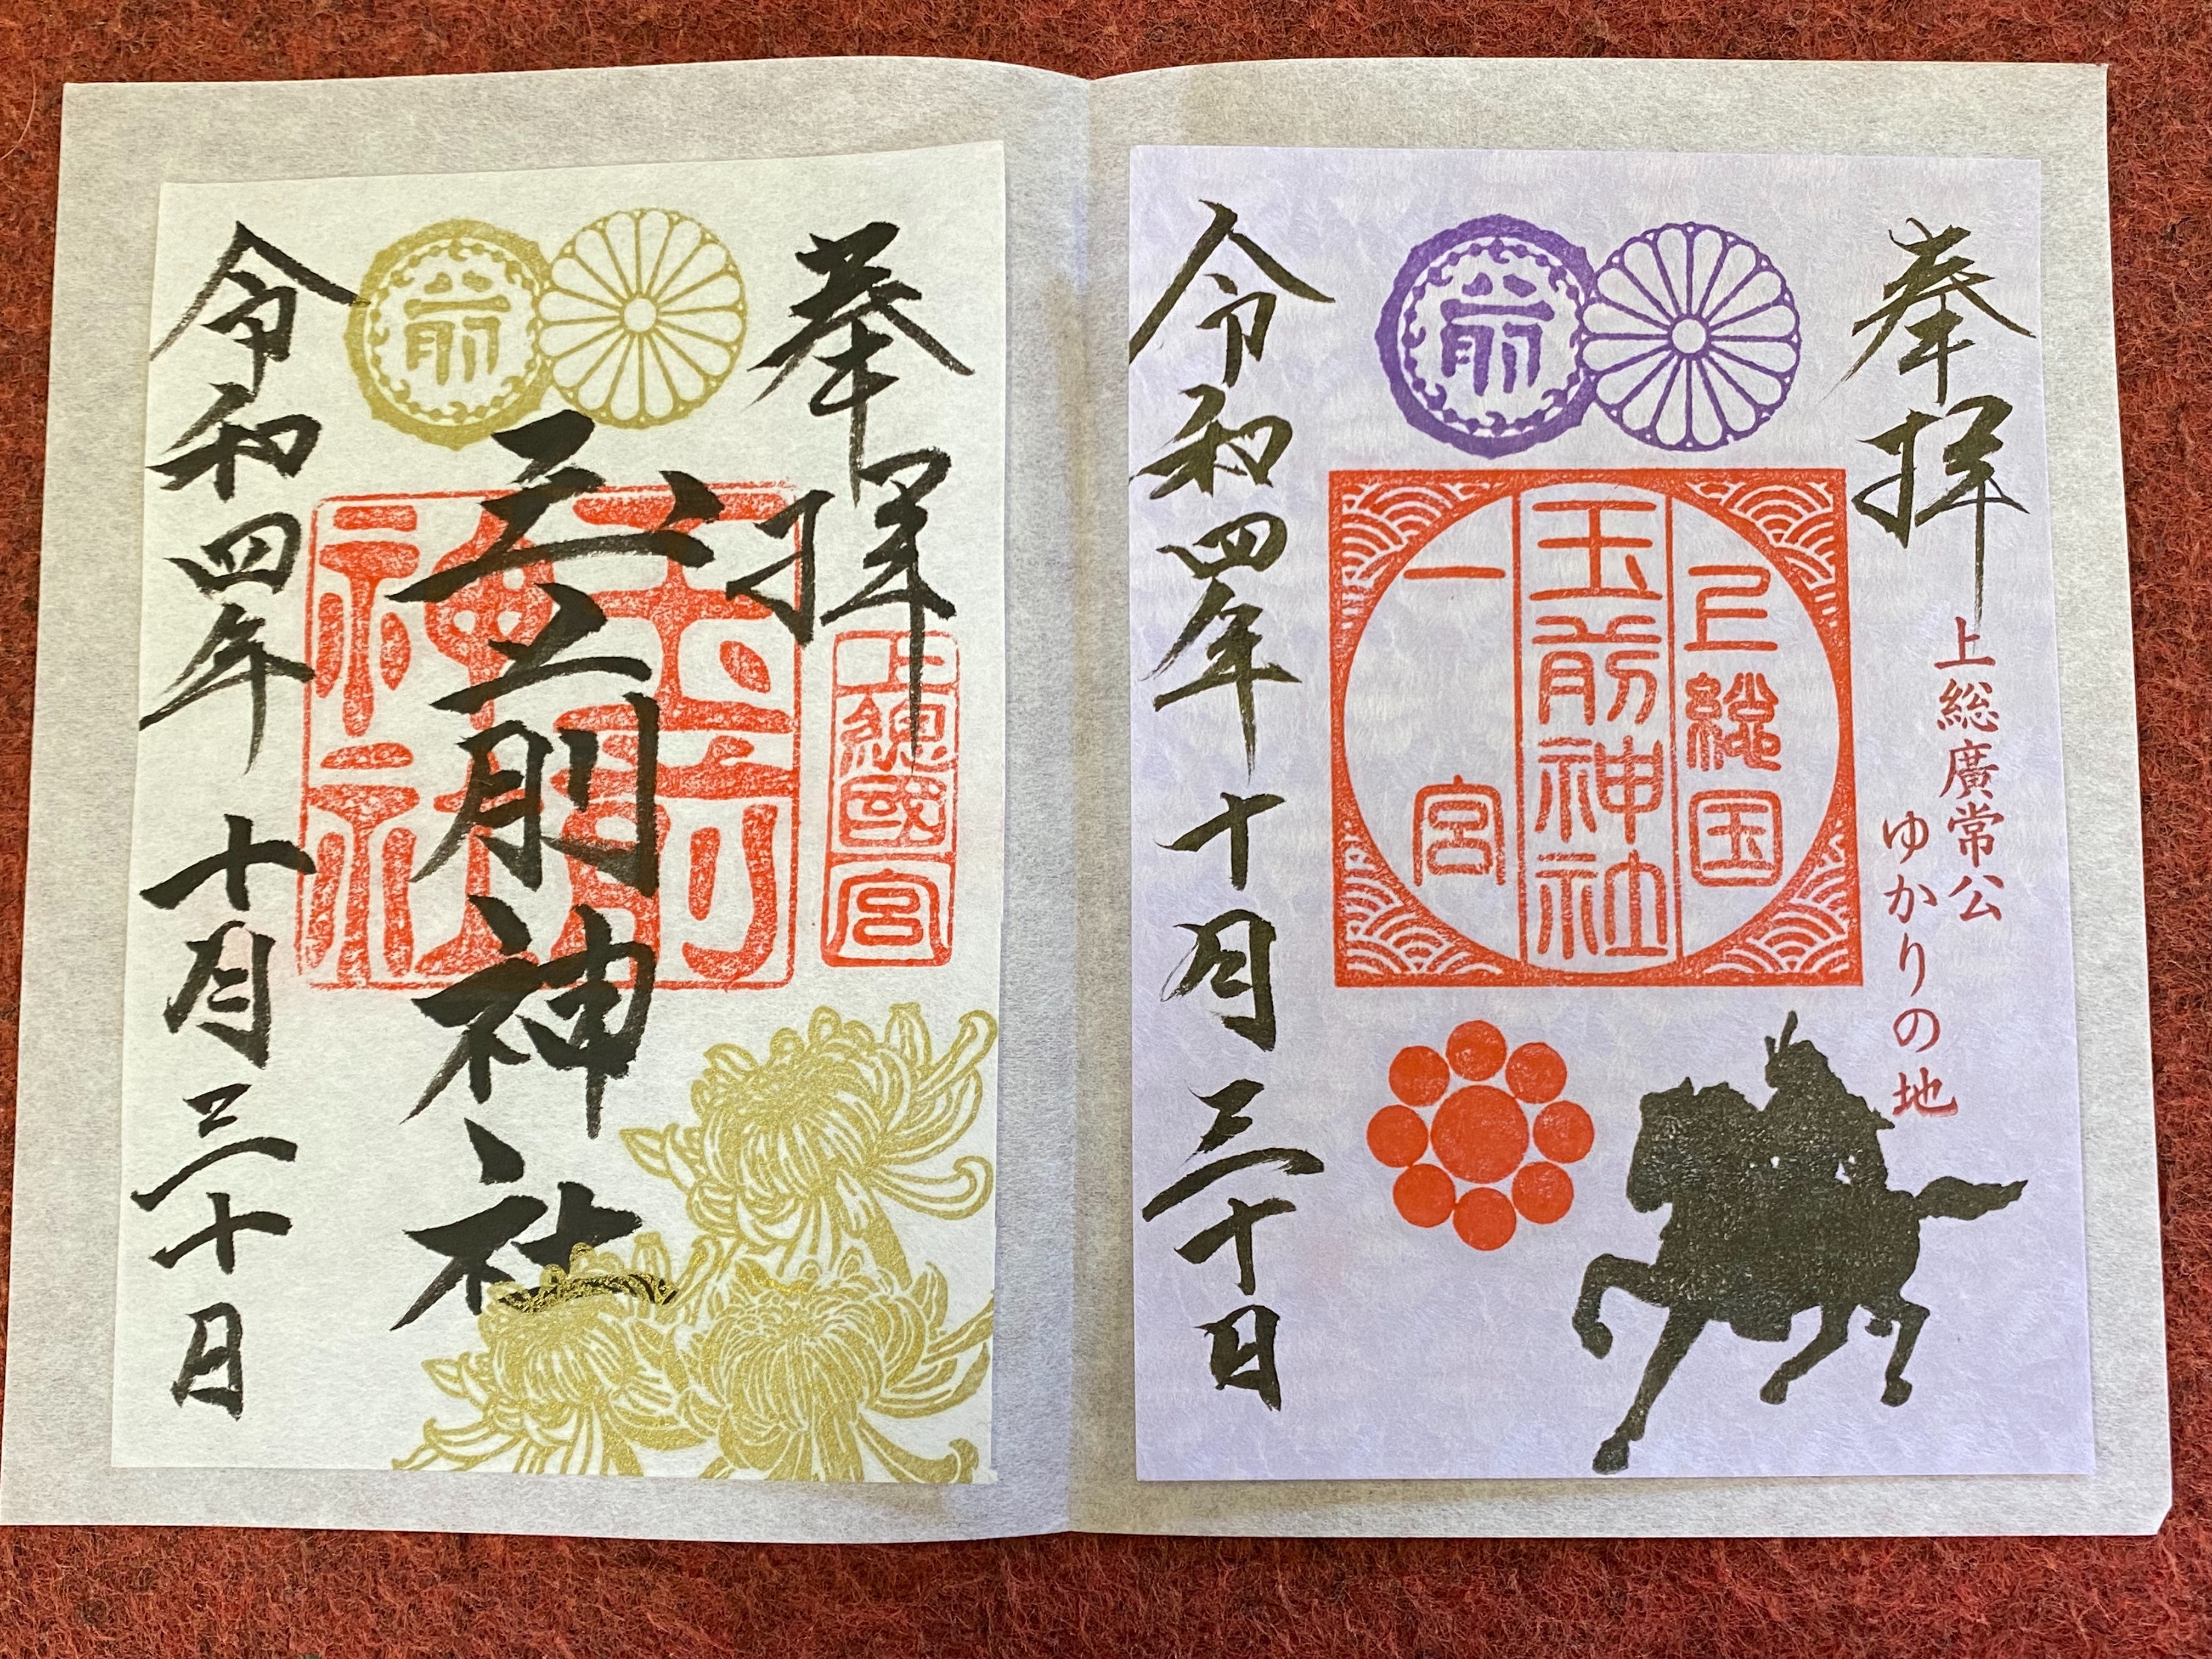 奉拝
上総廣常公
ゆかりの地
前
上総国
玉前神社
一宮
令和四年十月三十日
奉拝
上總國一宮
前
玉前神社
玉前神社
令和四年十月三十日